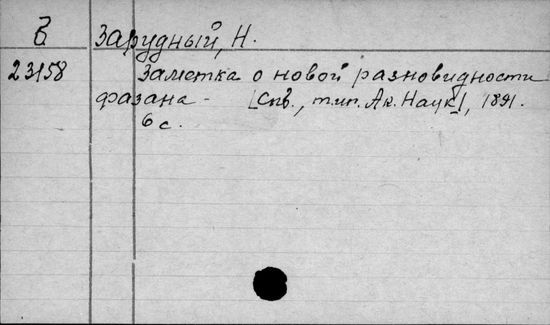 Б Зарудный, Н.
23158 Заметка о новой разновидности
фазана - [Спб., тип. Ак. Наук], 1891.
6 с.